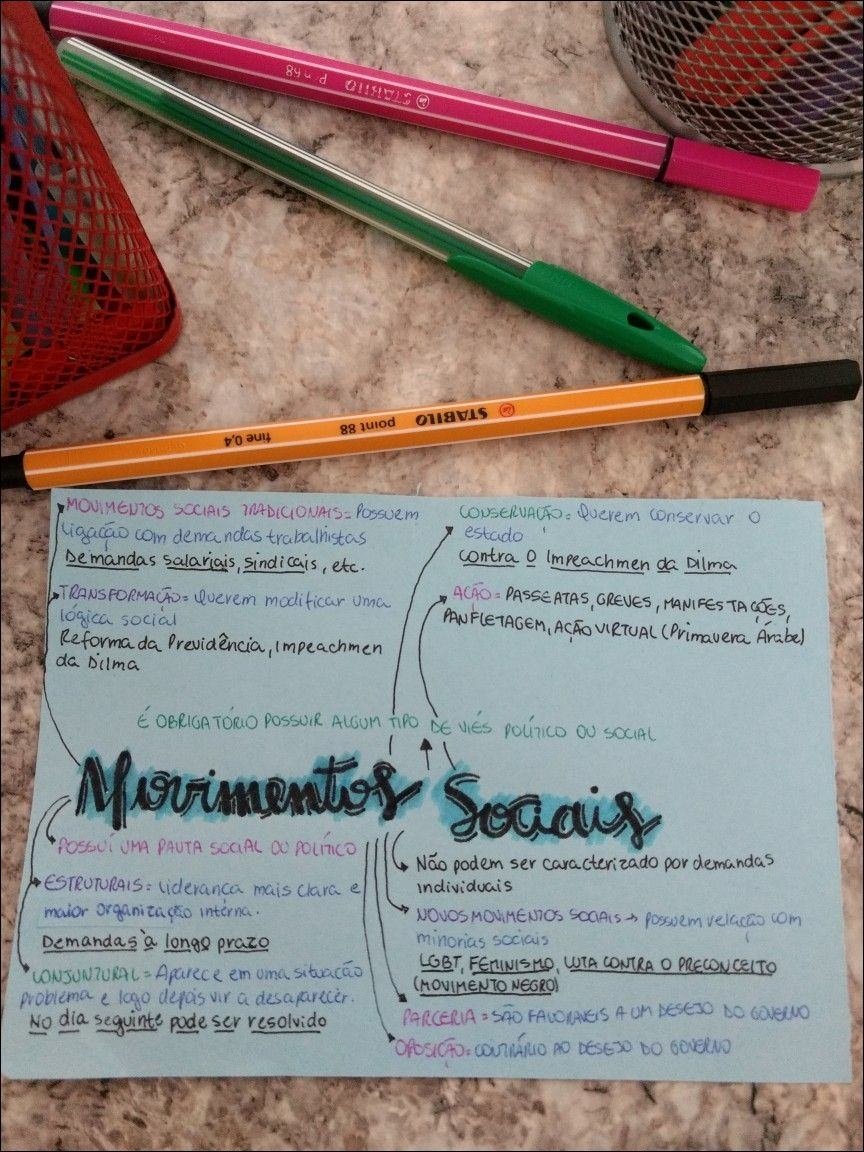 STABILO Pen 68
STABILO point 88 fine 0,4
MOVIMENTOS SOCIAIS TRADICIONAIS= Possuem
ligação com demandas trabalhistas
Demandas salariais, sindicais, etc.
TRANSFORMAÇÃO= Querem modificar uma
lógica social
Reforma da Previdência, Impeachmen
da Dilma
CONSERVAÇÃO= Querem conservar o
estado
contra o Impeachmen da Dilma
AÇÃO= PASSEATAS, GREVES, MANIFESTAÇÕES,
PANFLETAGEM, AÇÃO VIRTUAL (Primavera Árabe)
É OBRIGATÓRIO POSSUIR ALGUM TIPO DE VIÉS POLÍTICO OU SOCIAL
Movimentos Sociais
POSSUÍ UMA PAUTA SOCIAL OU POLÍTICO
ESTRUTURAIS= Liderança mais clara e
maior organização interna.
Demandas à longo prazo
CONJUNTURAL= Aparece em uma situação
problema e logo depois vir a desaparecer.
No dia seguinte pode ser resolvido
Não podem ser caracterizado por demandas
individuais
NOVOS MOVIMENTOS SOCIAIS → Possuem relação com
minorias sociais
LGBT, FEMINISMO, LUTA CONTRA O PRECONCEITO
(MOVIMENTO NEGRO)
PARCERIA= SÃO FAVORAVEIS A UM DESEJO DO GOVERNO
OPOSIÇÃO= CONTRÁRIO AO DESEJO DO GOVERNO